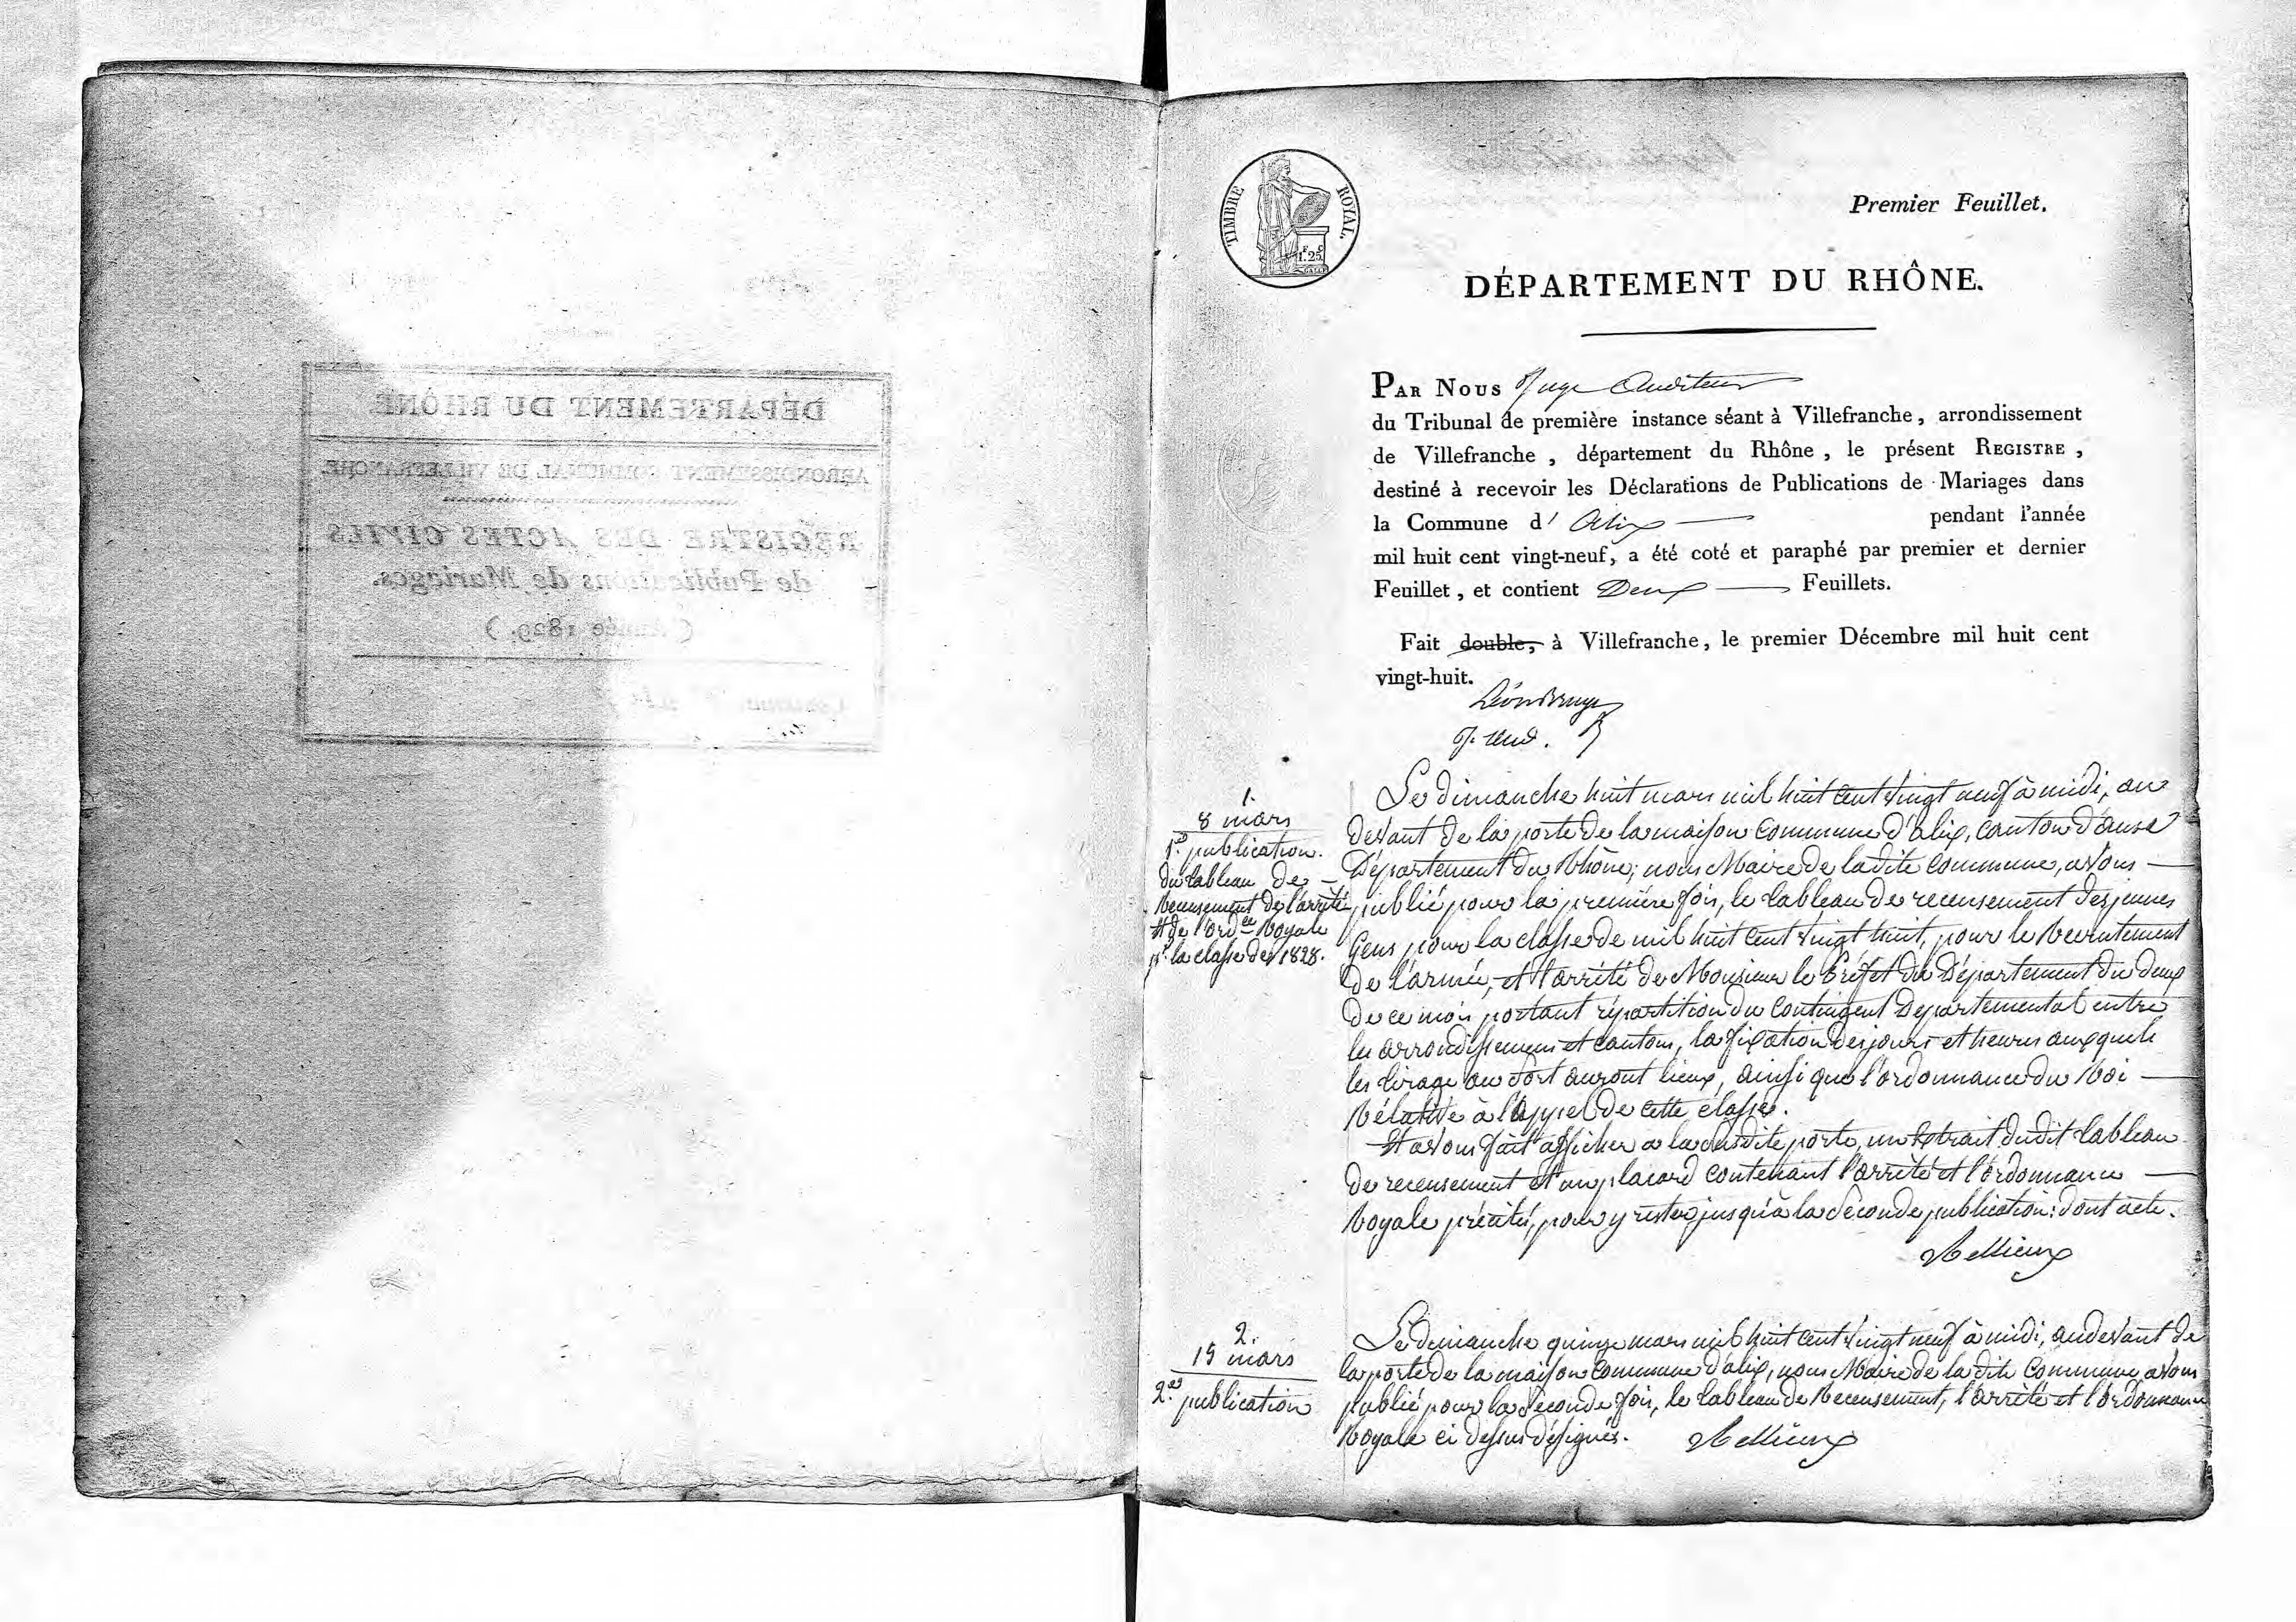 DÉPARTEMENT DU RHÔNE
ARRONDISSEMENT COMMUNAL DE VILLEFRANCHE.
REGISTRE DES ACTES CIVILS
de Publications de Mariages.
( Année 1829. )
TIMBRE ROYAL.
F. C
1.25
Premier Feuillet.
DÉPARTEMENT DU RHÔNE.
PAR NOUS Juge Auditeur
du Tribunal de première instance séant à Villefranche, arrondissement
de Villefranche, département du Rhône, le présent REGISTRE,
destiné à recevoir les Déclarations de Publications de Mariages dans
la Commune d' Alix pendant l'année
mil huit cent vingt-neuf, a été coté et paraphé par premier et dernier
Feuillet, et contient Deux Feuillets.
Fait double, à Villefranche, le premier Décembre mil huit cent
vingt-huit.
J. aud.
1.
8 mars
1.re publication.
du tableau de
Recensement de l'arrêté
et de l'ord.ce Royale
pr. la classe de 1828.
Le dimanche huit mars mil huit cent vingt neuf à midi, au
devant de la porte de la maison Commune d'alix, canton d'anse
Département du Rhône; nous Maire de la dite Commune, avons
publié pour la première fois, le tableau de recensement des jeunes
Gens pour la classe de mil huit cent vingt huit, pour le Recrutement
de l'armée, et l'arrêté de Monsieur le Préfet du Département du deux
de ce mois portant répartition du Contingent Departemental entre
les arrondissemens et cantons, la fixation des jours et heures auxquels
les tirage au sort auront lieux, ainsi que l'ordonnance du Roi
Rélative à l'Appel de cette classe.
Et avons fait afficher a la susdite porte, un Extrait dudit tableau
de recensement et un placard contenant l'arrêté et l'ordonnance
Royale précités, pour y rester jusqu'à la seconde publication: dont acte.
2.
15 mars
2.e publication
Le dimanche quinze mars mil huit cent vingt neuf à midi, au devant de
la porte de la maison Commune d'alix, nous Maire de la dite Commune, avons
publié pour la seconde fois, le tableau de Recensement, l'arrêté et l'ordonnance
Royale ci dessus désignés.